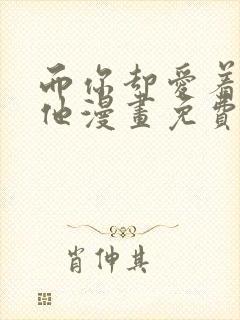 而你却愛着
他漫畫免費
肖仲其